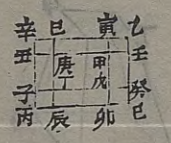 辛 巳 寅 乙
丑 庚 甲 壬
子 丁 戊 癸
丙 辰 卯 巳